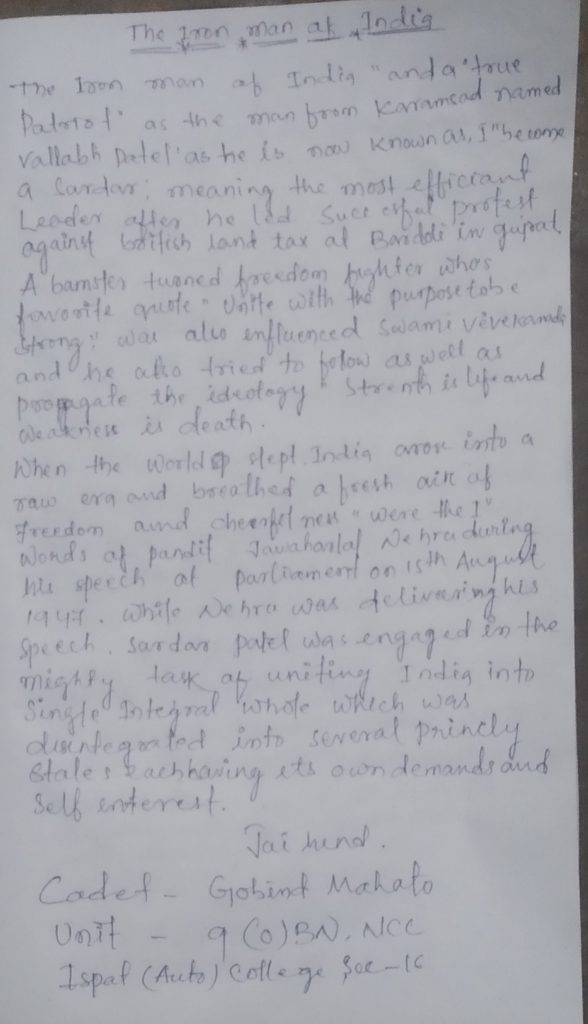 The Iron man af India
The Iron man af India "and a "true
Patriot" as the man from Karamsad named
Vallabh Patel' as he is now known as, I "become
a Sardar; meaning the most efficiant
Leader after he led successful protest
against british land tax at Bardoli in gujrat.
A barrister turned freedom fighter whos
favorite quote " Unite with the purpose to be
Strong" was also enfluenced Swami vevekananda
and he also tried to folow as well as
propagate the ideology " Strenth is life and
weakness is death.
When the World slept India arose into a
raw era and breathed a fresh air af
Freedom and cheerfelness " were the I"
Words af pandit Jawaharlal Nehru during
his speech at parliament on 15th August
1947. While Nehru was delivering his
Speech, Sardar patel was engaged in the
mighty task af uniting India into
Single Integral whole which was
disentegrated into several princly
States each having its own demands and
Self enterest.
Jai hend.
Cadet - Gobind Mahato
Unit - 9 (O) BN. NCC
Ispat (Auto) College Sec-16